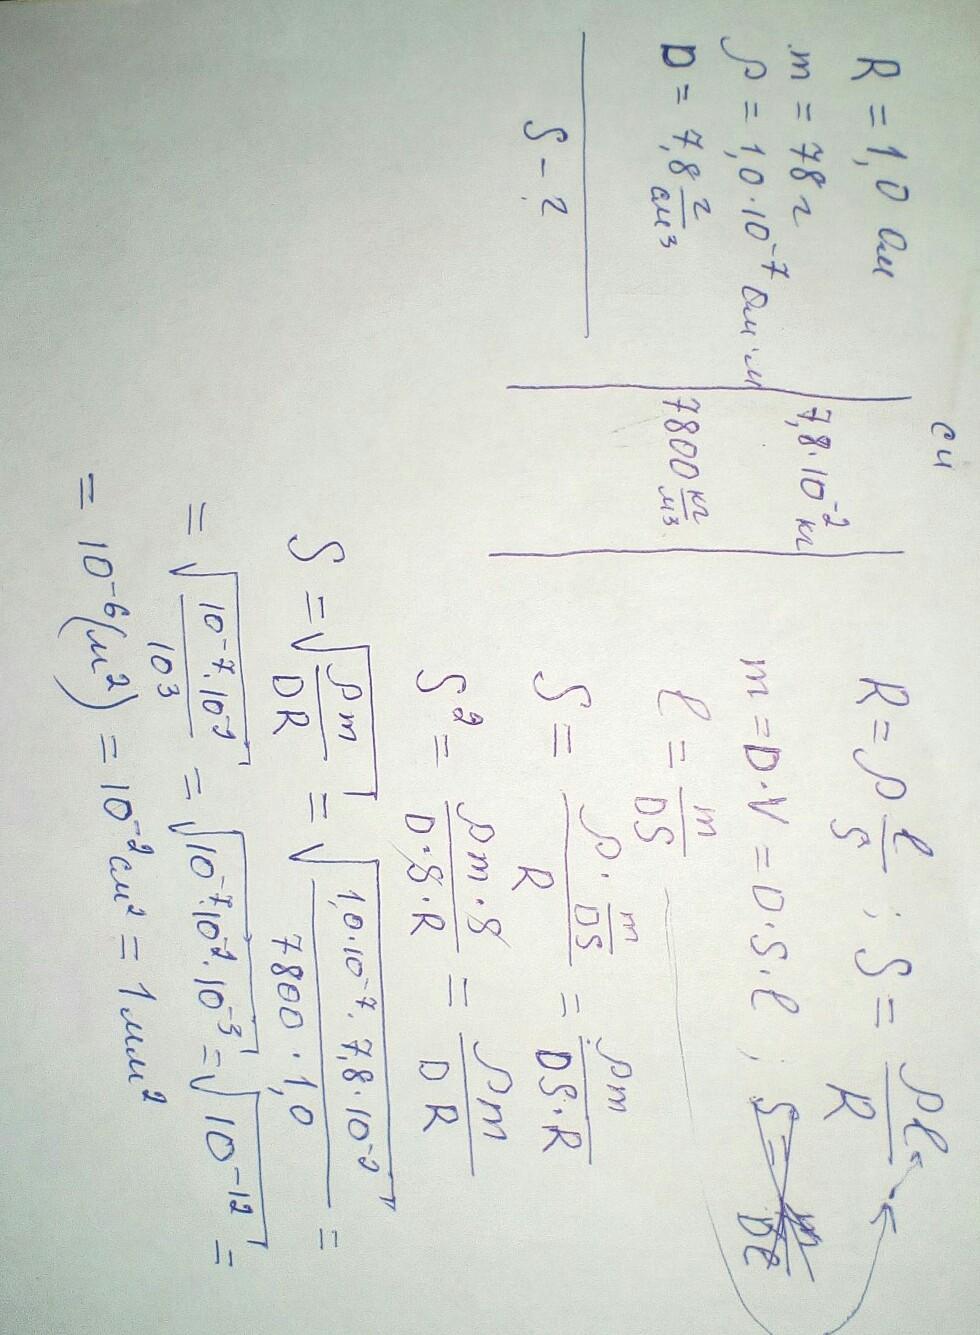 СИ
R = 1,0 Ом
m = 78 г | 7,8·10⁻² кг
ρ = 1,0·10⁻⁷ Ом·м
D = 7,8 г/см³ | 7800 кг/м³
S - ?
R = ρ l/S ; S = ρl/R
m = D·V = D·S·l ; S = m/Dl
l = m/DS
S = (ρ · m/DS)/R = ρm/(DS·R)
S² = (ρm·S)/(D·S·R) = ρm/DR
S = √(ρm/DR) = √((1,0·10⁻⁷·7,8·10⁻²)/(7800·1,0)) =
= √((10⁻⁷·10⁻²)/10³) = √(10⁻⁷·10⁻²·10⁻³) = √(10⁻¹²) =
= 10⁻⁶ (м²) = 10⁻² см² = 1 мм²